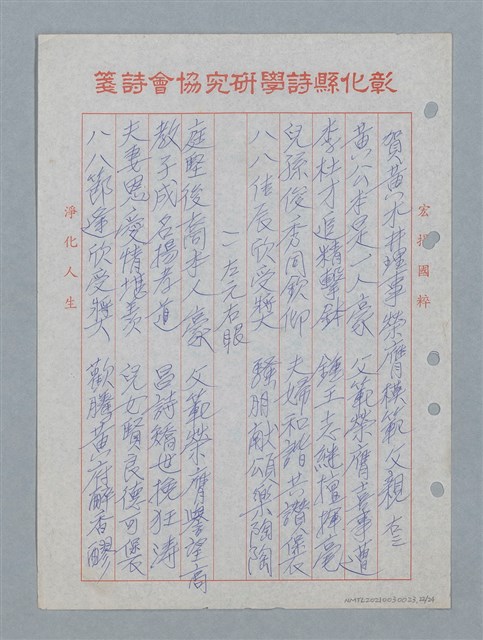 彰化縣詩學研究協會詩箋
宏揚國粹
賀黃水井理事榮膺模範父親 右三
黃公本是一人豪 父範榮膺喜事遭
李杜才追精擊鉢 鍾王志繼擅揮毫
兒孫俊秀同欽仰 夫婦和諧共讚褒
八八佳辰欣受獎 騷朋献頌樂陶陶
一左元右眼
庭堅後裔本人豪 父範榮膺譽望高
教子成名揚孝道 吕詩矯世挽狂濤
夫妻恩愛情堪羡 兒女賢良德可褒
八八節逢欣受獎 歡騰黃府醉香醪
淨化人生